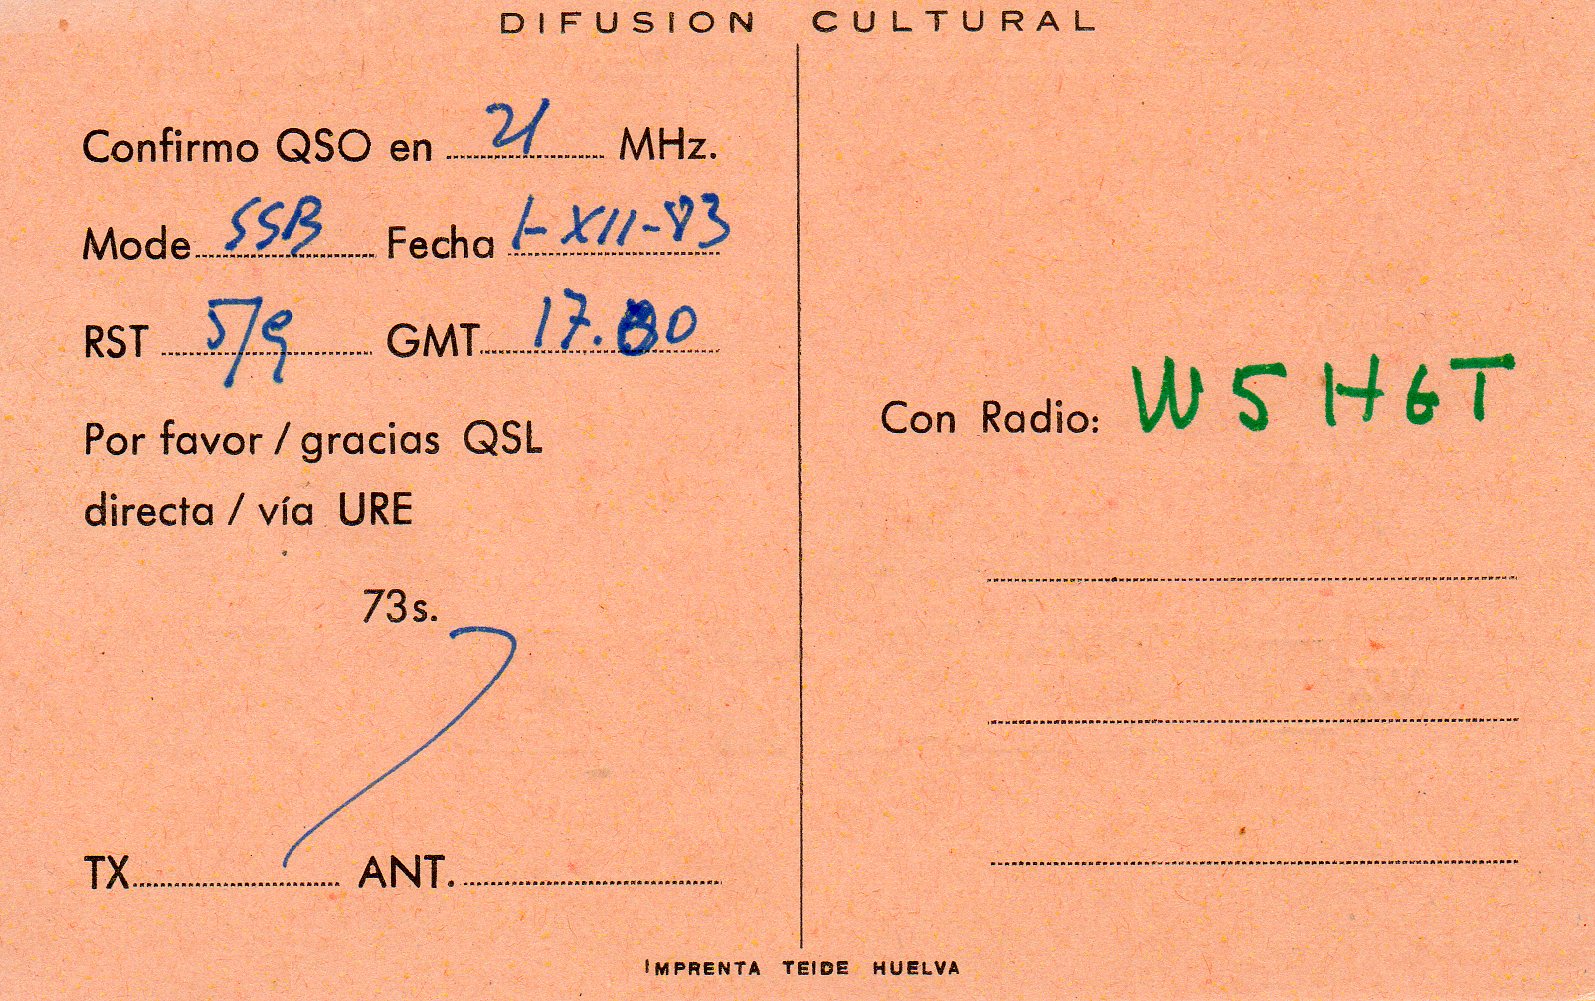 DIFUSION CULTURAL
Confirmo QSO en 21 MHz.
Mode SSB Fecha 1-XII-83
RST 5/9 GMT
Por favor / gracias QSL
directa / vía URE
73s.
TX ANT.
Con Radio: W5HGT
IMPRENTA TEIDE HUELVA